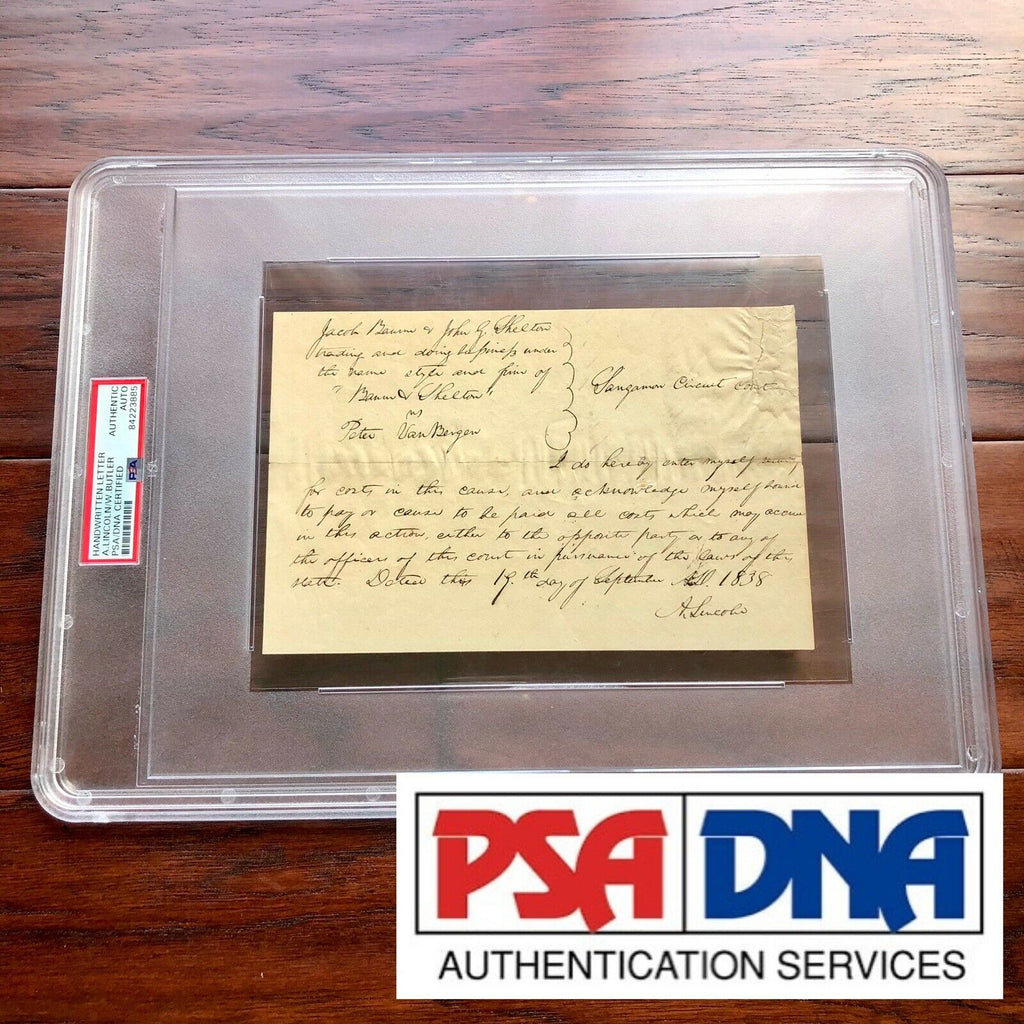 HANDWRITTEN LETTER
A.LINCOLN/W.BUTLER
PSA/DNA CERTIFIED
AUTHENTIC
AUTO
84223885
PSA
Jacob Baum & John G. Shelton
trading and doing business under
the name style and firm of
"Baum & Shelton"
vs
Peter Van Bergen
Sangamon Circuit Court
I do hereby enter myself
for costs in this cause, and acknowledge myself bound
to pay or cause to be paid all costs which may accrue
in this action, either to the opposite party or to any of
the officers of this court in pursuance of the laws of this
state. Dated this 19th day of September A.D. 1838
A. Lincoln
PSA DNA
AUTHENTICATION SERVICES